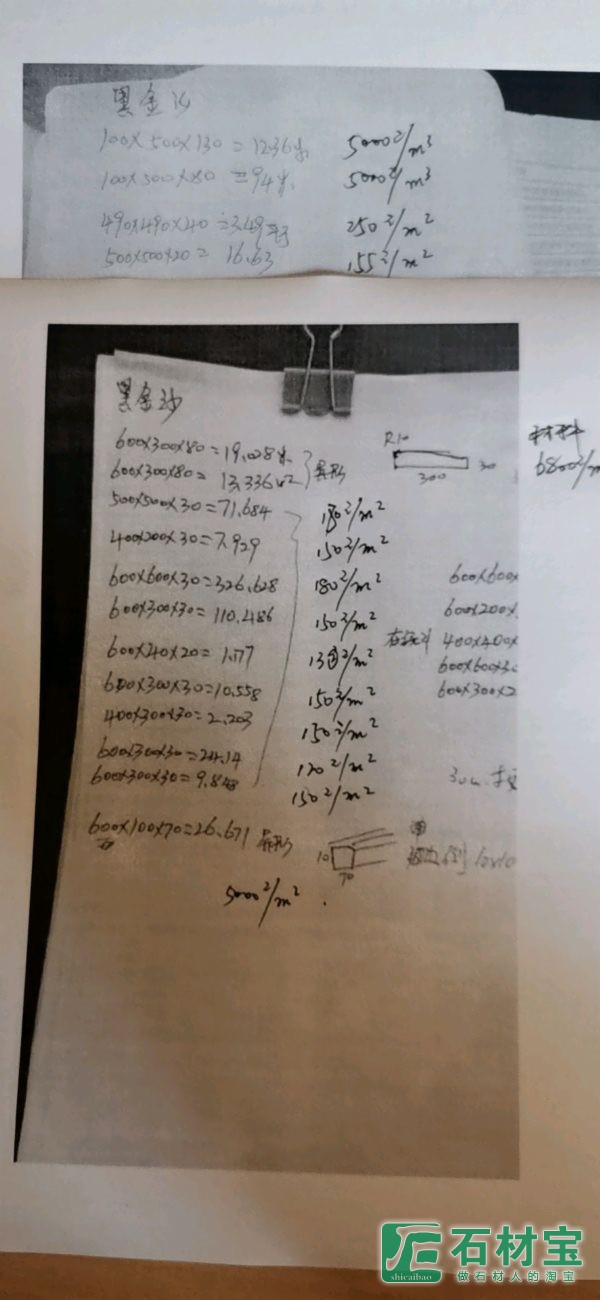 黑金沙
100×500×130=12.36米 5000元/m³
100×300×80=94米 5000元/m³
490×490×40=3.49平方 250元/m²
500×500×20=16.63 155元/m²
黑金沙
600×300×80=19.028米
600×300×80=13.336m² 异形
R10
300 30
材料
6800元/m
500×500×30=71.684 180元/m²
400×200×30=7.929 150元/m²
600×600×30=326.628 180元/m² 600×600×
600×300×30=110.486 150元/m² 600×200×
600×240×20=1.77 130元/m² 400×400×
600×600×30
600×300×30=10.558 150元/m² 600×300×2
400×300×30=2.203 150元/m²
600×300×30=24.14 120元/m²
600×300×30=9.848 150元/m²
600×100×70=26.671 异形
10
70
倒10×10
5000元/m²
石材宝
shicaibao 做石材人的淘宝